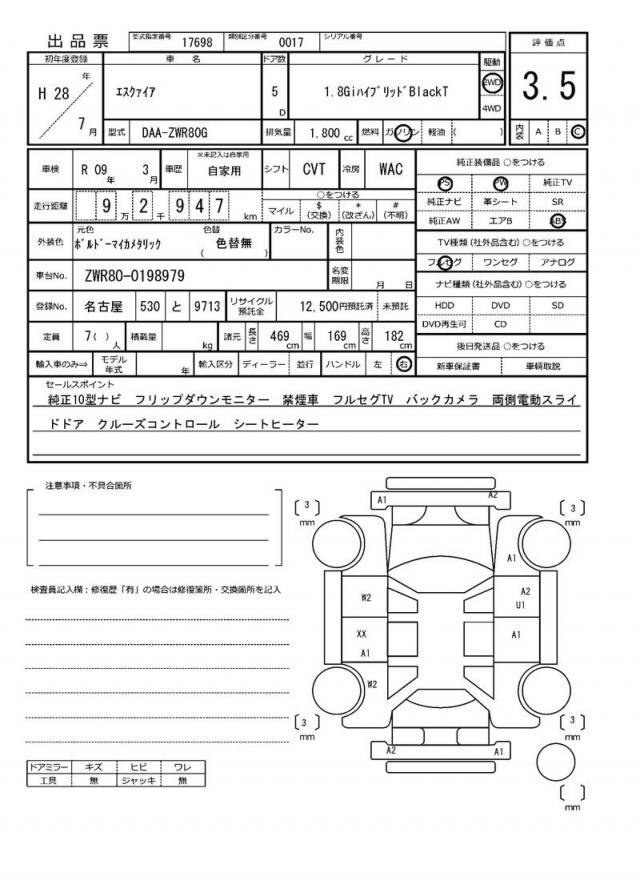 出品票
型式指定番号 17698 類別区分番号 0017 シリアル番号
初年度登録 車名 ドア数 グレード 駆動 評価点
H 28 年 7 月 エスクァイア 5 D 1.8Giハイブリッド BlackT 2WD 4WD 3.5
型式 DAA-ZWR80G 排気量 1,800 cc 燃料 ガソリン 軽油 ( ) 内装 A B C
車検 R 09 年 3 月 車歴 ※未記入は自家用 自家用 シフト CVT 冷房 WAC
純正装備品 ○をつける
PS PW 純正TV
純正ナビ 革シート SR
純正AW エアB ABS
走行距離 9 万 2 千 9 4 7 km ○をつける マイル $ (交換) * (改ざん) # (不明)
外装色 元色 ボルドーマイカメタリック 色替 ( 色替無 ) カラーNo. 内装色
TV種類 (社外品含む) ○をつける
フルセグ ワンセグ アナログ
車台No. ZWR80-0198979 名変期限 月 日
ナビ種類 (社外品含む) ○をつける
登録No. 名古屋 530 と 9713 リサイクル預託金 12,500円預託済 未預託
HDD DVD SD
DVD再生可 CD
定員 7( ) 人 積載量 kg 諸元 長さ 469 cm 幅 169 cm 高さ 182 cm
後日発送品 ○をつける
輸入車のみ⇒ モデル年式 年 輸入区分 ディーラー 並行 ハンドル 左 右 新車保証書 車輌取説
セールスポイント
純正10型ナビ フリップダウンモニター 禁煙車 フルセグTV バックカメラ 両側電動スライ
ドドア クルーズコントロール シートヒーター
注意事項・不具合箇所
検査員記入欄：修復歴「有」の場合は修復箇所・交換箇所を記入
A1 A2
3 mm 3 mm
A1
W2 A2 U1
XX A1 A1
W2
3 mm 3 mm
A2 A1
mm
ドアミラー キズ ヒビ ワレ
工具 無 ジャッキ 無